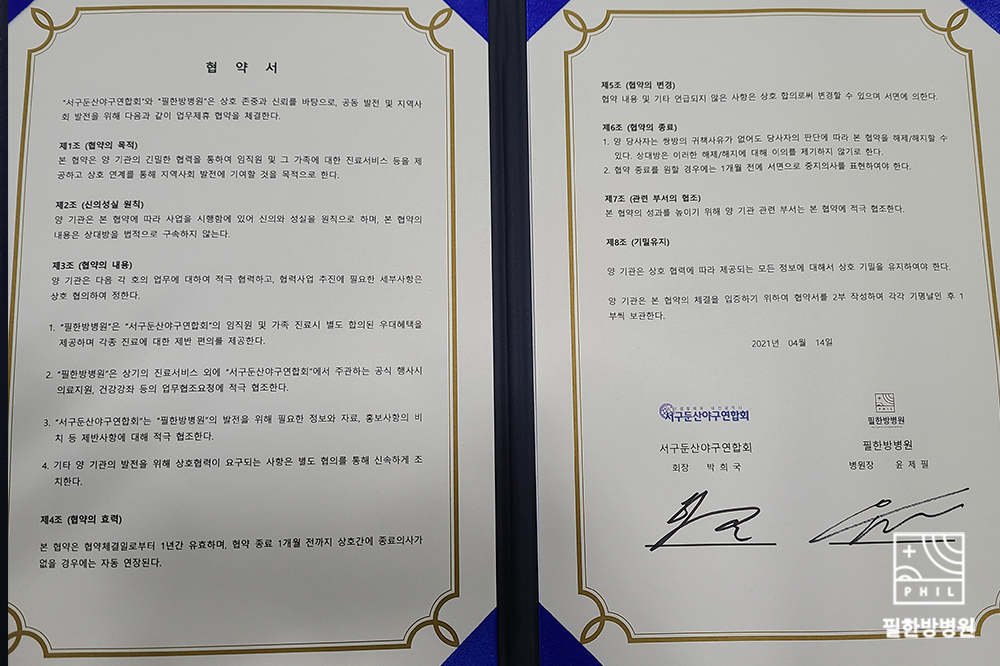 협 약 서
"서구둔산야구연합회"와 "필한방병원"은 상호 존중과 신뢰를 바탕으로, 공동 발전 및 지역사
회 발전을 위해 다음과 같이 업무제휴 협약을 체결한다.
제1조 (협약의 목적)
본 협약은 양 기관의 긴밀한 협력을 통하여 임직원 및 그 가족에 대한 진료서비스 등을 제
공하고 상호 연계를 통해 지역사회 발전에 기여할 것을 목적으로 한다.
제2조 (신의성실 원칙)
양 기관은 본 협약에 따라 사업을 시행함에 있어 신의와 성실을 원칙으로 하며, 본 협약의
내용은 상대방을 법적으로 구속하지 않는다.
제3조 (협약의 내용)
양 기관은 다음 각 호의 업무에 대하여 적극 협력하고, 협력사업 추진에 필요한 세부사항은
상호 협의하여 정한다.
1. "필한방병원"은 "서구둔산야구연합회"의 임직원 및 가족 진료시 별도 합의된 우대혜택을
제공하며 각종 진료에 대한 제반 편의를 제공한다.
2. "필한방병원"은 상기의 진료서비스 외에 "서구둔산야구연합회"에서 주관하는 공식 행사시
의료지원, 건강강좌 등의 업무협조요청에 적극 협조한다.
3. "서구둔산야구연합회"는 "필한방병원"의 발전을 위해 필요한 정보와 자료, 홍보사항의 비
치 등 제반사항에 대해 적극 협조한다.
4. 기타 양 기관의 발전을 위해 상호협력이 요구되는 사항은 별도 협의를 통해 신속하게 조
치한다.
제4조 (협약의 효력)
본 협약은 협약체결일로부터 1년간 유효하며, 협약 종료 1개월 전까지 상호간에 종료의사가
없을 경우에는 자동 연장된다.
제5조 (협약의 변경)
협약 내용 및 기타 언급되지 않은 사항은 상호 합의로써 변경할 수 있으며 서면에 의한다.
제6조 (협약의 종료)
1. 양 당사자는 쌍방의 귀책사유가 없어도 당사자의 판단에 따라 본 협약을 해제/해지할 수
있다. 상대방은 이러한 해제/해지에 대해 이의를 제기하지 않기로 한다.
2. 협약 종료를 원할 경우에는 1개월 전에 서면으로 중지의사를 표현하여야 한다.
제7조 (관련 부서의 협조)
본 협약의 성과를 높이기 위해 양 기관 관련 부서는 본 협약에 적극 협조한다.
제8조 (기밀유지)
양 기관은 상호 협력에 따라 제공되는 모든 정보에 대해서 상호 기밀을 유지하여야 한다.
양 기관은 본 협약의 체결을 입증하기 위하여 협약서를 2부 작성하여 각각 기명날인 후 1
부씩 보관한다.
2021년 04월 14일
서구둔산야구연합회
PHIL
필한방병원
서구둔산야구연합회
필한방병원
회장 박 희 국
병원장 윤 제 필
PHIL
필한방병원